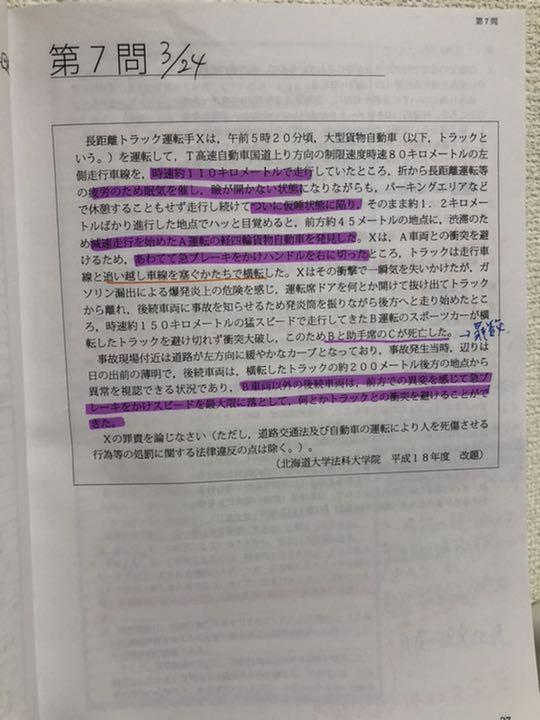 第7問
第7問 3/24
長距離トラック運転手Xは，午前5時20分頃，大型貨物自動車（以下，トラックと
いう。）を運転して，T高速自動車国道上り方向の制限速度時速80キロメートルの左
側走行車線を，時速約110キロメートルで走行していたところ，折から長距離運転等
の疲労のため眠気を催し，瞼が開かない状態になりながらも，パーキングエリアなど
で休憩することもせず走行し続けてついに仮睡状態に陥り，そのまま約1．2キロメー
トルばかり進行した地点でハッと目覚めると，前方約45メートルの地点に，渋滞のため
減速走行を始めたA運転の軽四輪貨物自動車を発見した。Xは，A車両との衝突を避
けるため，あわてて急ブレーキをかけハンドルを右に切ったところ，トラックは走行車
線と追い越し車線を塞ぐかたちで横転した。Xはその衝撃で一瞬気を失いかけたが，ガ
ソリン漏出による爆発炎上の危険を感じ，運転席ドアを何とか開けて抜け出てトラック
から離れ，後続車両に事故を知らせるため発炎筒を振りながら後方へと走り始めたとこ
ろ，時速約150キロメートルの猛スピードで走行してきたB運転のスポーツカーが横
転したトラックを避け切れず衝突大破し，このためBと助手席のCが死亡した。
事故現場付近は道路が左方向に緩やかなカーブとなっており，事故発生当時，辺りは
日の出前の薄明で，後続車両は，横転したトラックの約200メートル後方の地点から
異常を視認できる状況であり，B車両以外の後続車両は，前方での異変を感じて急ブ
レーキをかけスピードを最大限に落として，何とかトラックとの衝突を避けることがで
きた。
Xの罪責を論じなさい（ただし，道路交通法及び自動車の運転により人を死傷させる
行為等の処罰に関する法律違反の点は除く。）。
（北海道大学法科大学院 平成18年度 改題）